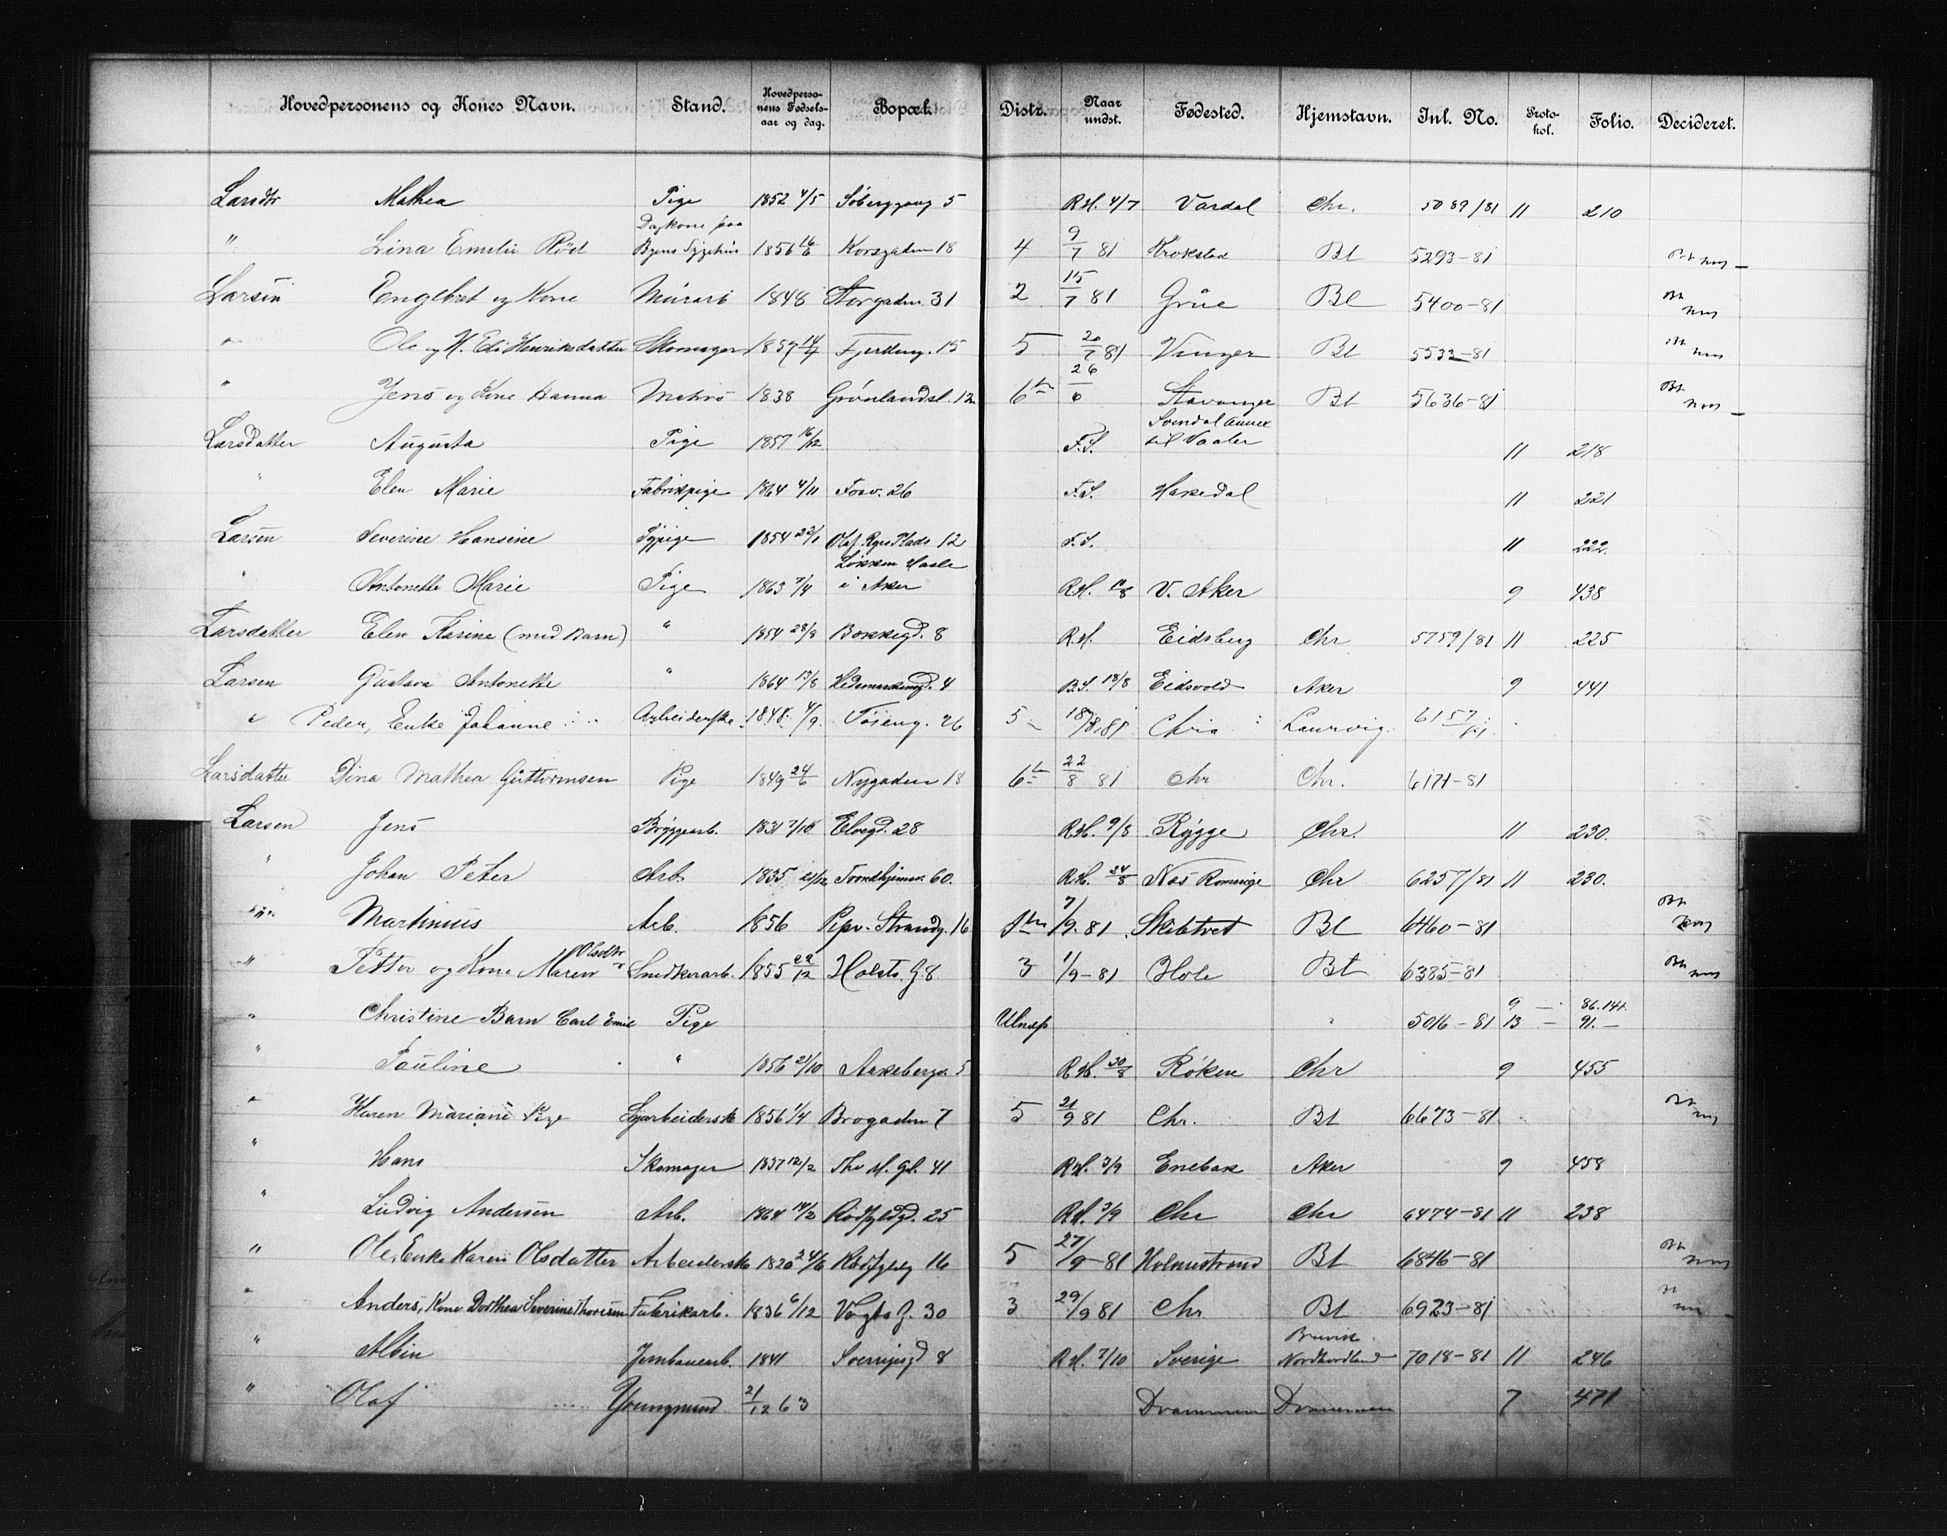 Hovedpersonens og Kones Navn. Stand. Hovedperso-nens Fødsels-aar og dag. Bopæl. Distr. Naar undst. Fødested. Hjemstavn. Inl. No. Proto-kol. Folio. Decideret.
Larsdtr Mathea Pige 1852 4/5 Søberggang 5 R.H. 4/7 Vardal Chr. 5089/81 11 210
" Lina Emelie Røed Dagkone paa Byens Sygehus 1856 Korsgaden 18 4 9/7 81 Krokstad Bt 5293-81 Bt
Larsen Englbret og Kone Murarb 1848 Storgaden 31 2 15/7 81 Grue Bt 5400-81 Bt
" Ole og H. Edi Henriksdatter Skomager 1857 14/4 Fjerding. 15 5 20/7 81 Vinger Bt 5532-81 Bt
" Jens og Kone Hanna Matros 1838 Grønlandsl. 12 6te 26 Stavanger Bt 5636-81 Bt
Larsdatter Augusta Pige 1857 16/12 F.S. Svindal Annex til Vaaler 11 218
" Elen Marie Fabrikpige 1864 4/11 Fosv. 26 F.S. Hakedal 11 221
Larsen Severine Hansine Sypige 1854 22/1 Olaf Ryes Plads 12 F.S. 11 222.
" Antonette Marie Pige 1863 7/4 Løkken Hasle i Aker R.H. V. Aker 9 438
Larsdatter Elen Karine (med Barn) " 1854 28/8 Bokkegd. 8 R.H. Eidsberg Chr 5759/81 11 225
Larsen Gustava Antonette " 1864 13/8 Hedemarkensgd. 4 B.S. 18/8 Eidsvold Aker 9 441
" Peder, Enke Johanne Arbeiderske 1848 4/9 Tøieng. 26 5 18/8 81 Chria Laurvig 6157/81
Larsdatter Dina Mathea Guttormsen Pige 1849 24/6 Nygaden 18 6te 22/8 81 Chr Chr. 6171-81
Larsen Jens Bryggearb. 1831 7/10 Elvegd. 28 R.H. 9/8 Rygge Chr. 11 230.
" Johan Peter Arb. 1835 21/12 Trondhjemsv. 60. R.H. 24/8 Næs Romerige Chr 6257/81 11 230.
" Martinius Arb. 1856 Pipv. Strandg. 16 1ste 7/9 81 Skibtvet Bt 6460-81 Bt
" Petter og Kone Maren Olsdtr Snedkerarb. 1855 22/12 Holsts G. 8 3 1/9-81 Hole Bt 6385-81 Bt
" Christine Barn Carl Emil Pige " 5016-81 9 - 86.141. 13 - 91.-
" Pauline " 1856 21/10 Akebergv. 5 R.H. 30/8 Røken Chr 9 455
" Karen Mariane Pige Syarbeidersk 1856 1/4 Brogaden 7 5 21/9 81 Chr. Bt 6673-81 Bt
" Hans Skomager 1837 12/2 Thv M. Gd. 41 R.H. 3/9 Enebak Aker 9 458
" Ludvig Andersen Arb. 1864 14/2 Rødfyldgd. 25 R.H. 3/9 Chr Chr 6474-81 11 238
" Ole, Enke Karen Olsdatter Arbeidersk 1820 24/6 Rødfyldg 16 5 27/9-81 Holmestrand Bt 6846-81 Bt
" Anders, Kone Dorthea Severine Thoresen Fabrikarb. 1836 6/12 Vogts G. 30 3 29/9 81 Chr. Bt 6923-81 Bt
" Albin Jernbanearb. 1841 Sverresgd 8 R.H. 7/10 Sverige Bruvik Nordhordland 7018-81 11 246
" Olaf Youngmand 21/12 63 Drammen Drammen 7 471